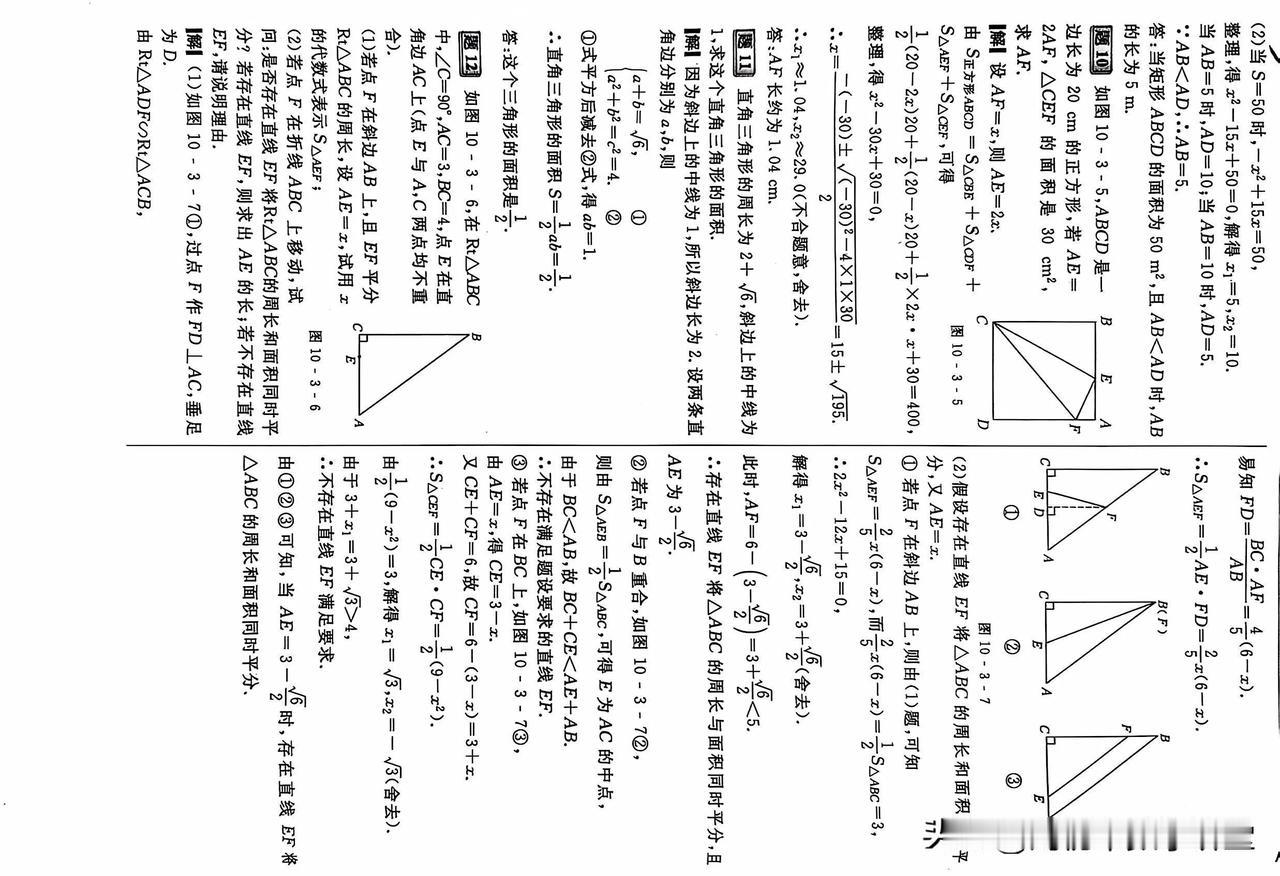 (2)当 S=50 时,-x²+15x=50,
整理,得 x²-15x+50=0,解得 x₁=5,x₂=10.
当 AB=5 时,AD=10;当 AB=10 时,AD=5.
∵AB<AD,∴AB=5.
答:当矩形 ABCD 的面积为 50 m²,且 AB<AD 时,AB
的长为 5 m.
题10 如图 10-3-5,ABCD 是一
边长为 20 cm 的正方形,若 AE=
2AF,△CEF 的面积是 30 cm²,
求 AF.
B E A
C F D
图 10-3-5
【解】 设 AF=x,则 AE=2x,
由 S正方形ABCD=S△CBE+S△CDF+
S△AEF+S△CEF,可得
1/2(20-2x)20+1/2(20-x)20+1/2×2x·x+30=400,
整理,得 x²-30x+30=0,
∴x=(-(-30)±√((-30)²-4×1×30))/2=15±√195.
∴x₁≈1.04,x₂≈29.0(不合题意,舍去).
答:AF 长约为 1.04 cm.
题11 直角三角形的周长为 2+√6,斜边上的中线为
1,求这个直角三角形的面积.
【解】 因为斜边上的中线为 1,所以斜边长为 2.设两条直
角边分别为 a,b,则
{a+b=√6, ①
a²+b²=c²=4. ②
①式平方后减去②式,得 ab=1.
∴直角三角形的面积 S=1/2ab=1/2.
答:这个三角形的面积是1/2.
题12 如图 10-3-6,在 Rt△ABC
中,∠C=90°,AC=3,BC=4,点 E 在直
角边 AC 上(点 E 与 A,C 两点均不重
合).
(1)若点 F 在斜边 AB 上,且 EF 平分
Rt△ABC 的周长,设 AE=x,试用 x
的代数式表示 S△AEF;
B
C E A
图 10-3-6
(2)若点 F 在折线 ABC 上移动,试
问:是否存在直线 EF 将Rt△ABC的周长和面积同时平
分?若存在直线 EF,则求出 AE 的长;若不存在直线
EF,请说明理由.
【解】 (1)如图 10-3-7①,过点 F 作 FD⊥AC,垂足
为 D.
由 Rt△ADF∽Rt△ACB,
易知 FD=BC·AF/AB=4/5(6-x).
∴S△AEF=1/2AE·FD=2/5x(6-x).
B F
C E D A
①
B(F)
C E A
②
B F
C E
③
图 10-3-7
(2)假设存在直线 EF 将△ABC 的周长和面积 平
分,又 AE=x.
① 若点 F 在斜边 AB 上,则由(1)题,可知
S△AEF=2/5x(6-x),而2/5x(6-x)=1/2S△ABC=3,
∴2x²-12x+15=0,
解得 x₁=3-√6/2,x₂=3+√6/2(舍去).
此时,AF=6-(3-√6/2)=3+√6/2<5.
∴存在直线 EF 将△ABC 的周长与面积同时平分,且
AE 为 3-√6/2.
② 若点 F 与 B 重合,如图 10-3-7②,
则由 S△AEB=1/2S△ABC,可得 E 为 AC 的中点,
由于 BC<AB,故 BC+CE<AE+AB.
∴不存在满足题设要求的直线 EF.
③ 若点 F 在 BC 上,如图 10-3-7③,
由 AE=x,得 CE=3-x.
又 CE+CF=6,故 CF=6-(3-x)=3+x.
∴S△CEF=1/2CE·CF=1/2(9-x²).
由1/2(9-x²)=3,解得 x₁=√3,x₂=-√3(舍去).
由于 3+x₁=3+√3>4,
∴不存在直线 EF 满足要求.
由①②③可知,当 AE=3-√6/2时,存在直线 EF 将
△ABC 的周长和面积同时平分.